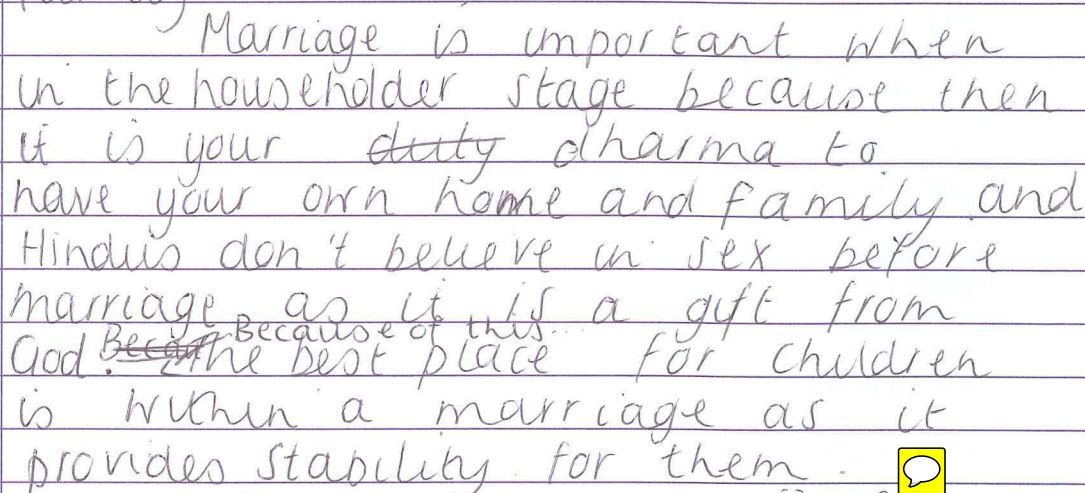 Marriage is important when
in the householder stage because then
it is your duty dharma to
have your own home and family and
Hinduis don't believe in sex before
marriage as it is a gift from
Because of this...
God. Becau The best place for children
is within a marriage as it
provides stability for them.